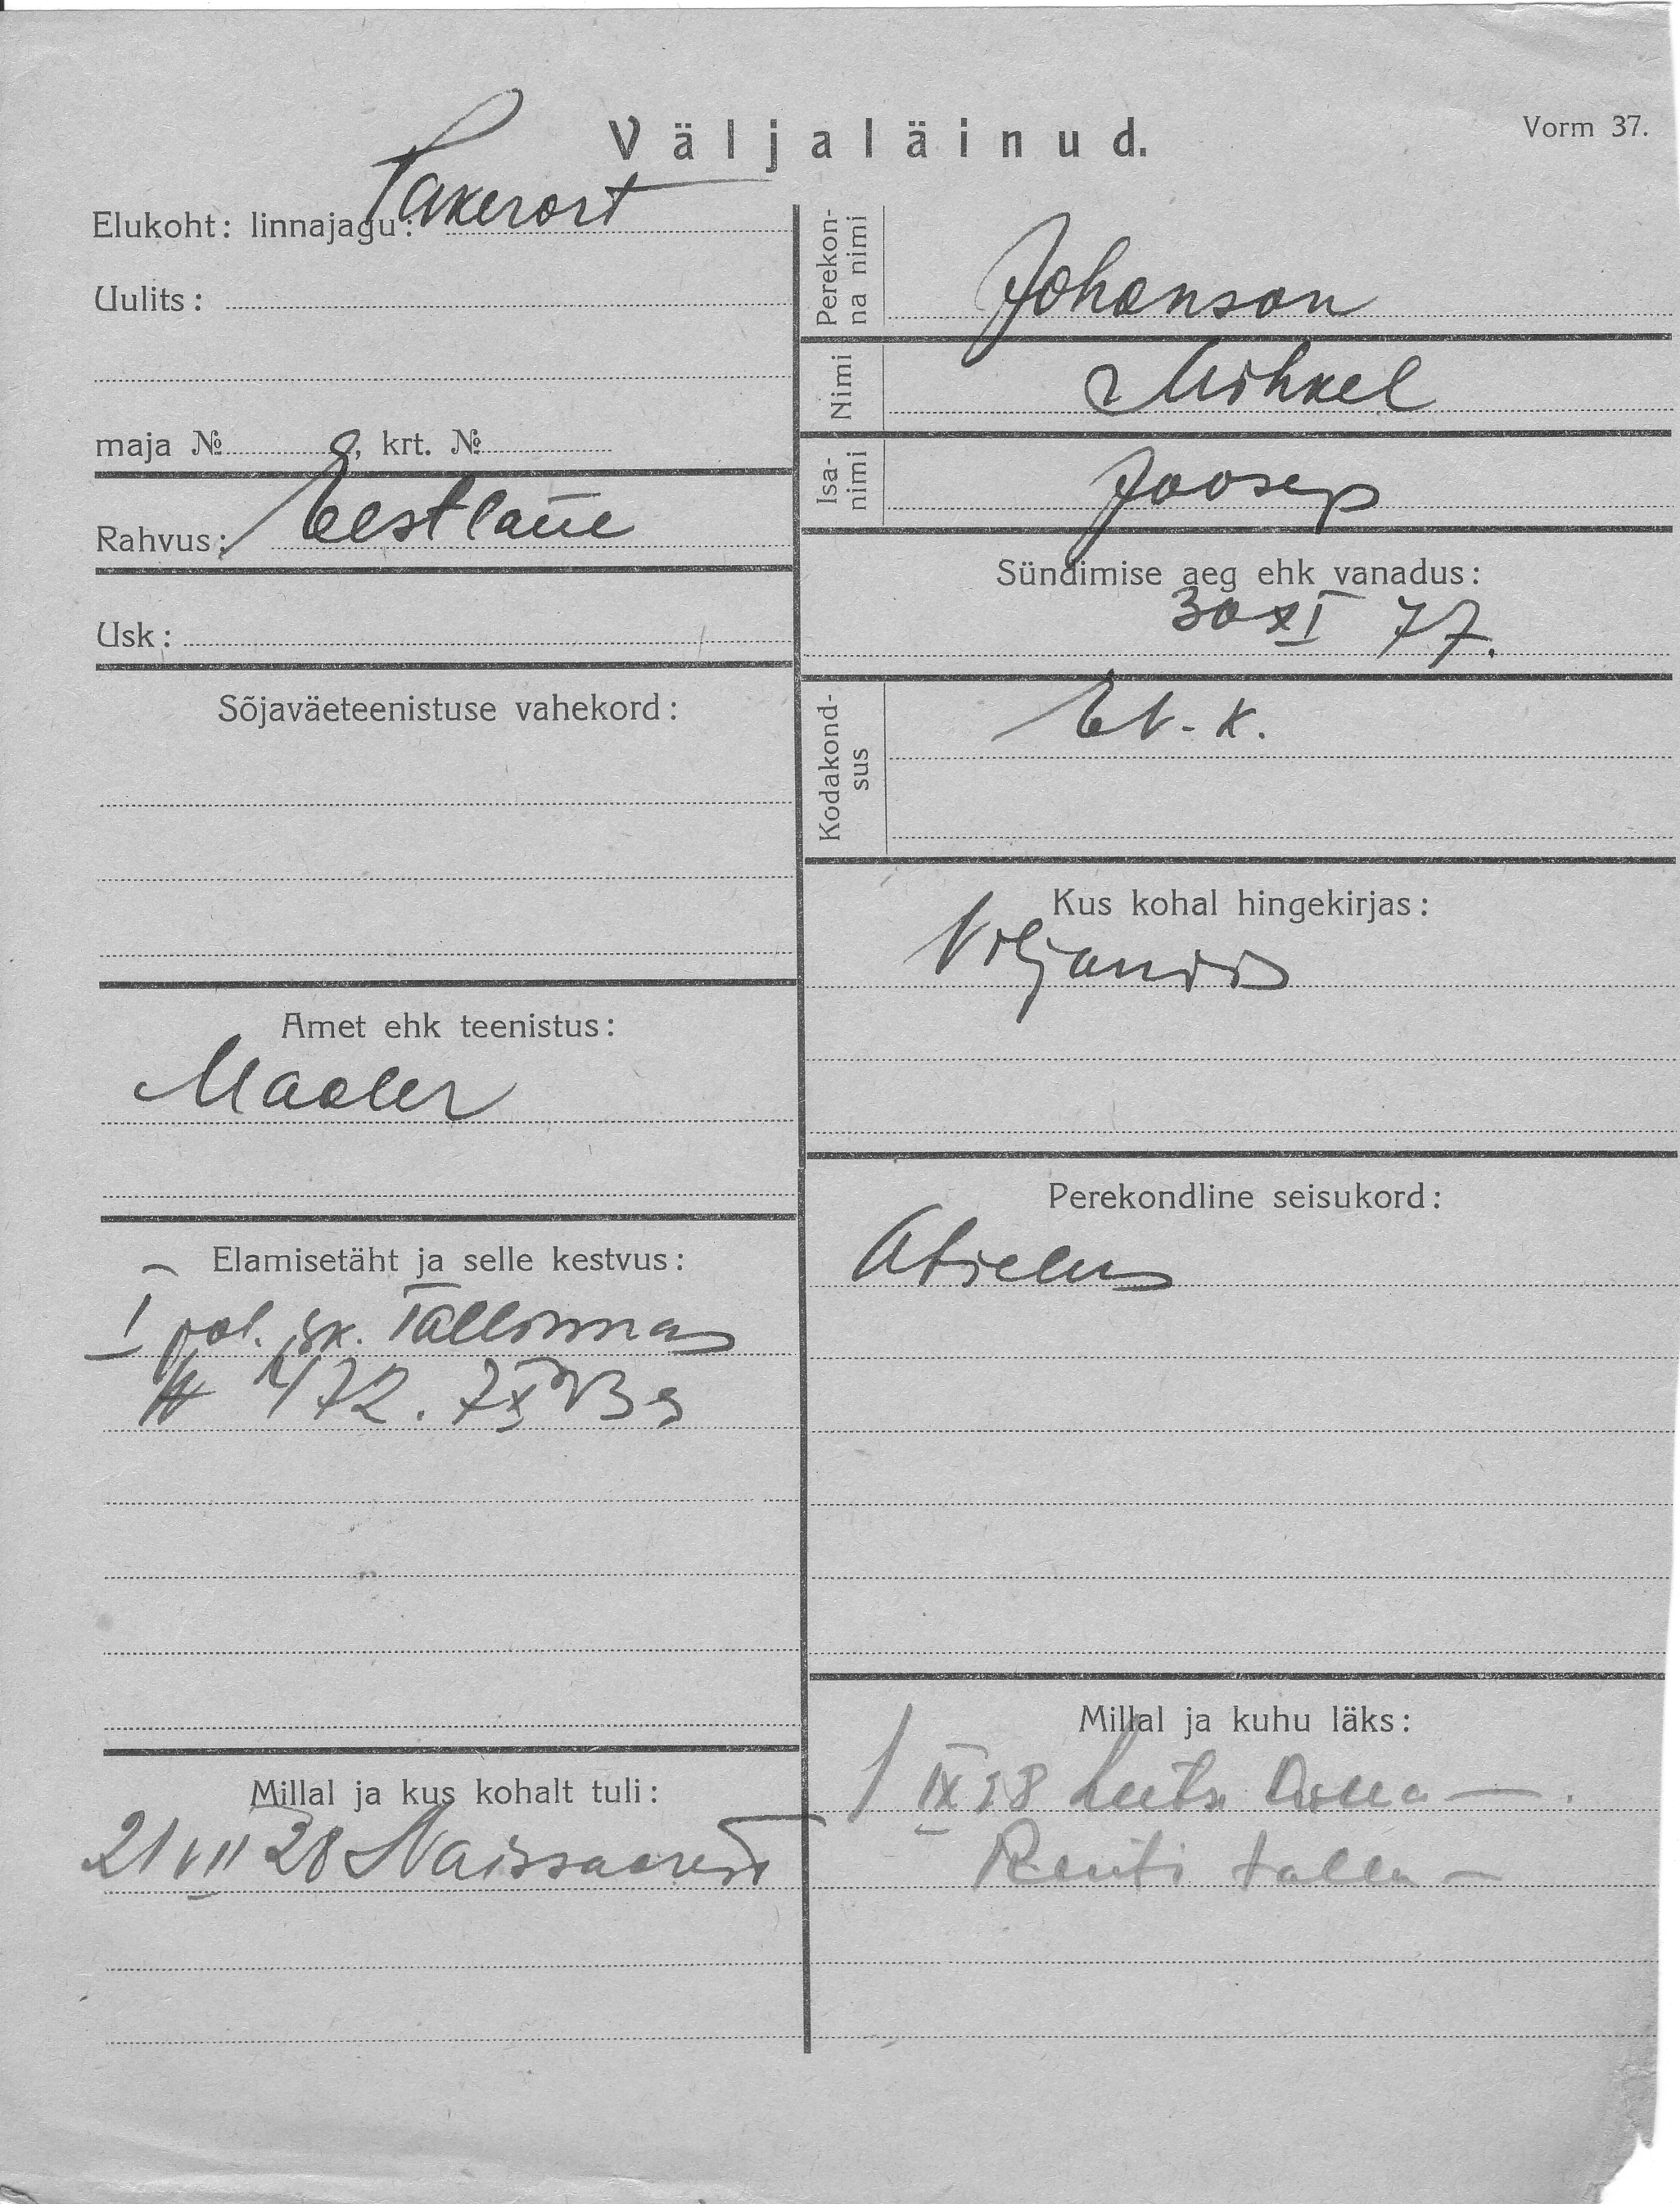 Väljaläinud.
Vorm 37.
Elukoht: linnajagu: Pakerort
Uulits:
maja № , krt. №
Rahvus: Eestlane
Usk:
Sõjaväeteenistuse vahekord:
Amet ehk teenistus:
Maaler
Elamisetäht ja selle kestvus:
I pol. jsk. Tallinnas
1472. 7 XI
Millal ja kus kohalt tuli:
21 VII 28 Naissaarest
Perekonna nimi
Johanson
Nimi
Mihkel
Isanimi
Joosep
Sündimise aeg ehk vanadus:
30 XI 77.
Kodakondsus
EV. k.
Kus kohal hingekirjas:
Viljandis
Perekondline seisukord:
Abielus
Millal ja kuhu läks:
1 IX 28
Renti tallu